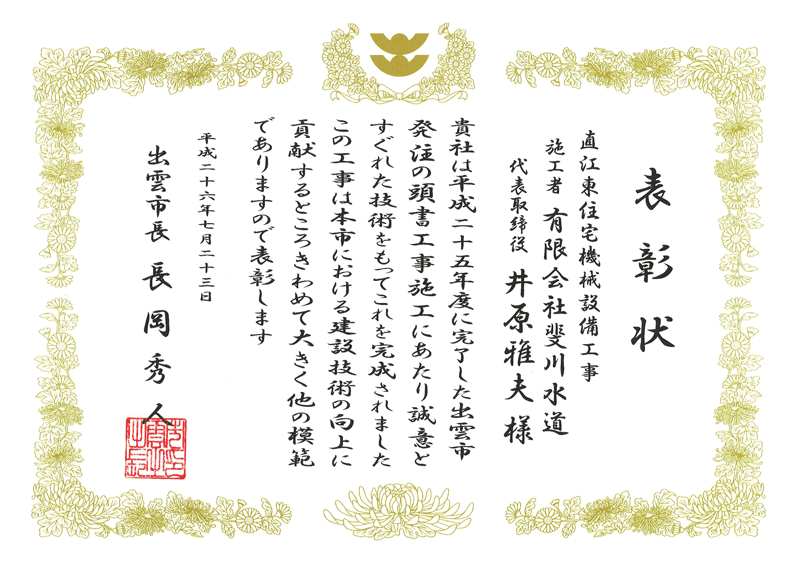 表彰状
直江東住宅機械設備工事
施工者 有限会社斐川水道
代表取締役 井原雅夫様
貴社は平成二十五年度に完了した出雲市
発注の頭書工事施工にあたり誠意と
すぐれた技術をもってこれを完成されました
この工事は本市における建設技術の向上に
貢献するところきわめて大きく他の模範
でありますので表彰します
平成二十六年七月二十三日
出雲市長 長岡秀人